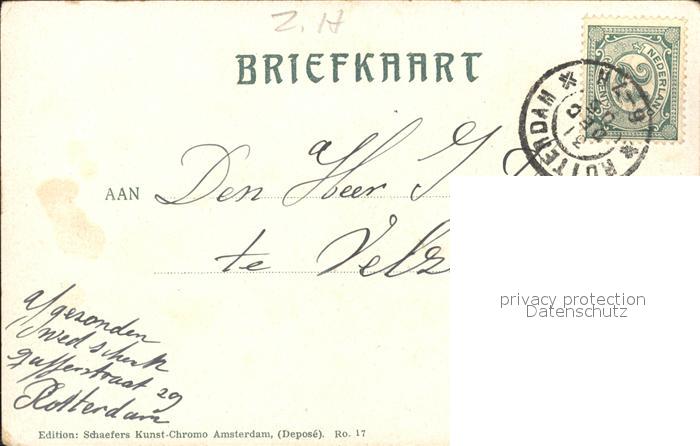 Z.H
BRIEFKAART
NEDERLAND
ROTTERDAM
AAN Den Heer J
te Velz
privacy protection
Datenschutz
afgezonden
wed schenk
Rotterdam
Edition: Schaefers Kunst-Chromo Amsterdam, (Deposé). Ro. 17